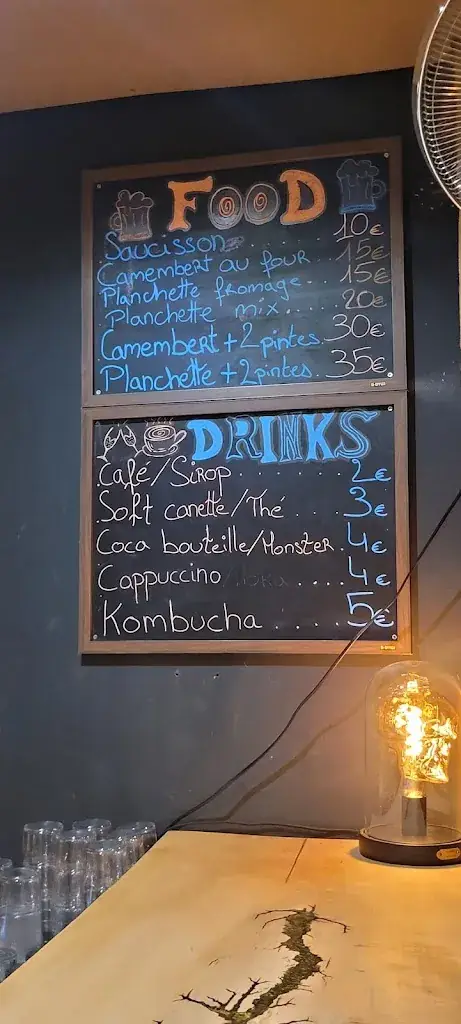 FOOD
Saucisson ........ 10€
Camembert au four 15€
Planchette fromage... 15€
Planchette mix..... 20€
Camembert + 2 pintes. 30€
Planchette + 2 pintes. 35€
DRINKS
Café/Sirop ....... 2€
Soft canette/Thé .... 3€
Coca bouteille/Monster. 4€
Cappuccino ..... 4€
Kombucha ..... 5€